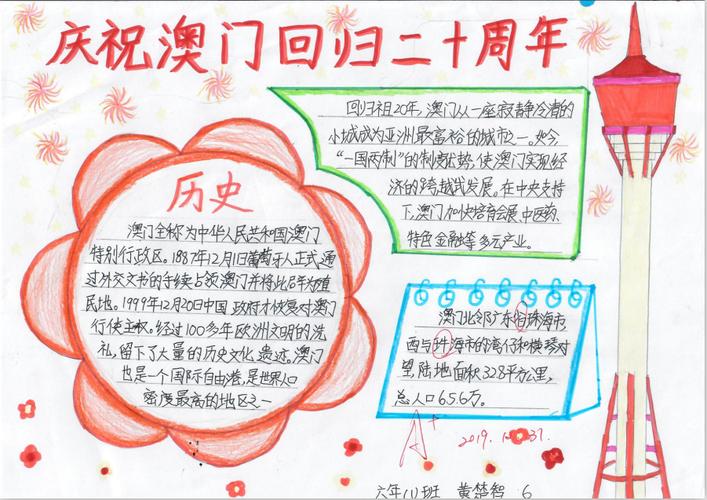 庆祝澳门回归二十周年
历史
澳门全称为中华人民共和国澳门
特别行政区。1887年12月1日葡萄牙人正式通
过外交文书的手续占领澳门并将此辟为殖
民地。1999年12月20日中国政府才恢复对澳门
行使主权。经过100多年欧洲文明的洗
礼,留下了大量的历史文化遗迹,澳门
也是一个国际自由港,是世界人口
密度最高的地区之一
回归祖20年,澳门从一座寂静冷清的
小城成为亚洲最富裕的城市之一。如今
“一国两制”的制度优势,使澳门实现经
济的跨越式发展。在中央支持
下,澳门加快培育会展、中医药、
特色金融等多元产业。
澳门北邻广东省珠海市,
西与珠海市的湾仔和横琴对
望,陆地面积32.8平方公里,
总人口65.6万。
A+
2019.
31.
六年(1)班 黄楚智 6